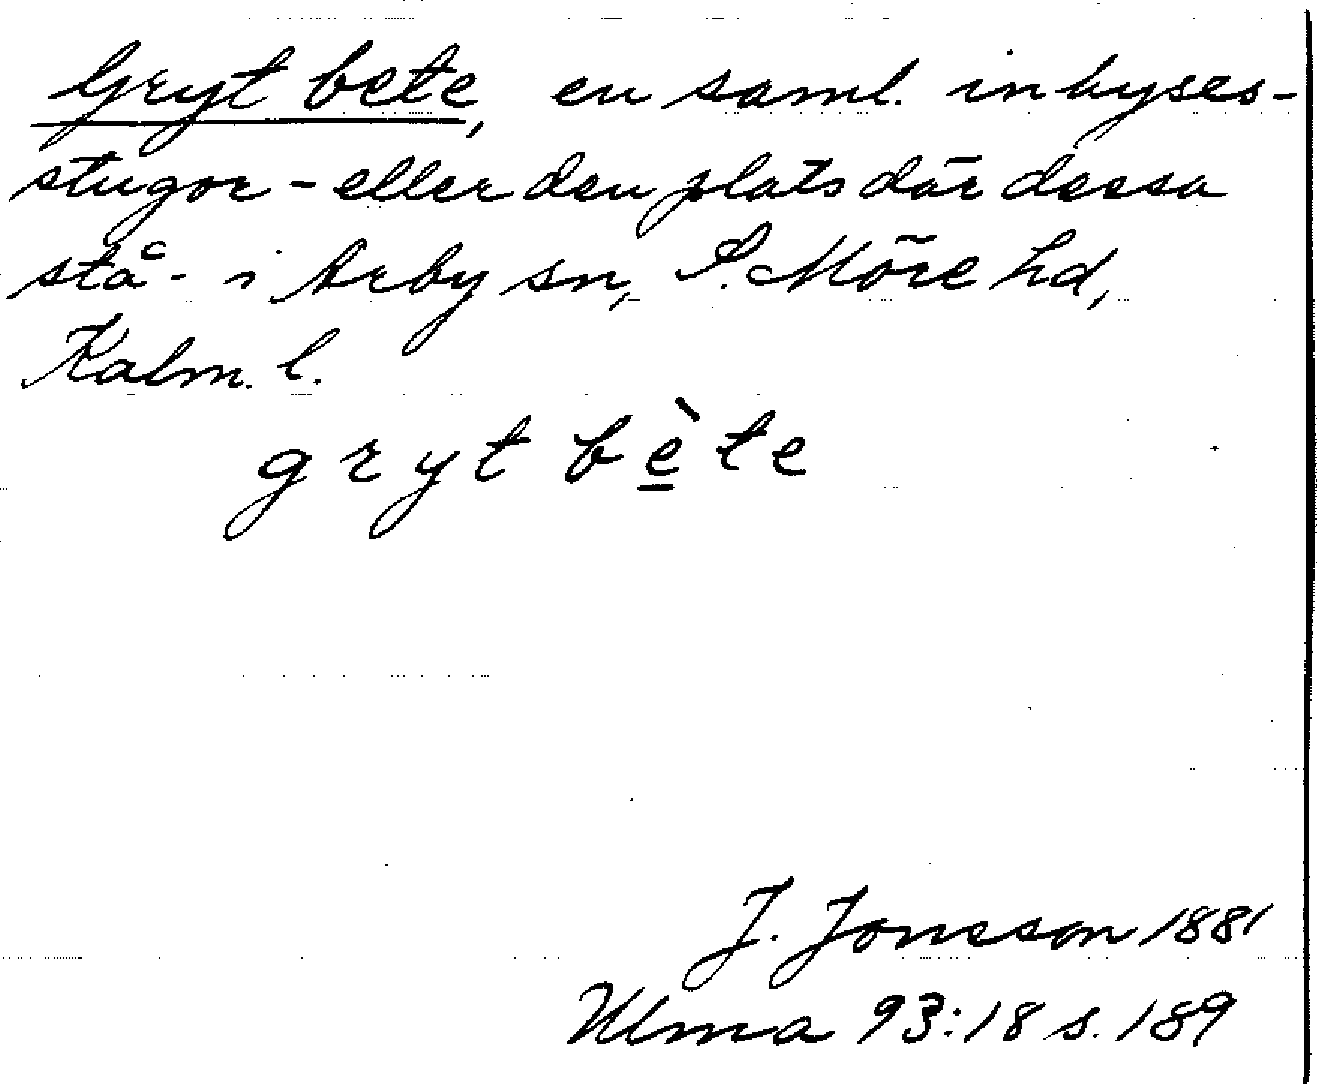 Gryt bete, en saml. inhyses-
stugor - eller den plats där dessa
stå - i Arby sn, S. Möre hd,
Kalm. l.
gryt bète
J. Jonsson 1881
Ulma 93:18 s. 189